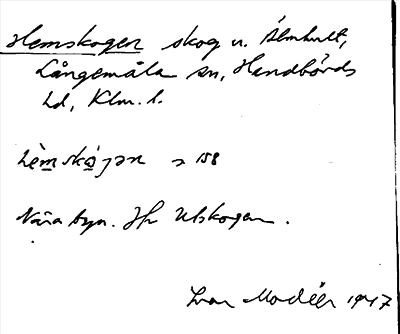 Hemskogen skog u. Älmhult,
Långemåla sn, Handbörds
hd, Klm. l.
hèmskɷ́gən > 158
Nära byn. Jfr Utskogen.
Ivar Modéer 1947